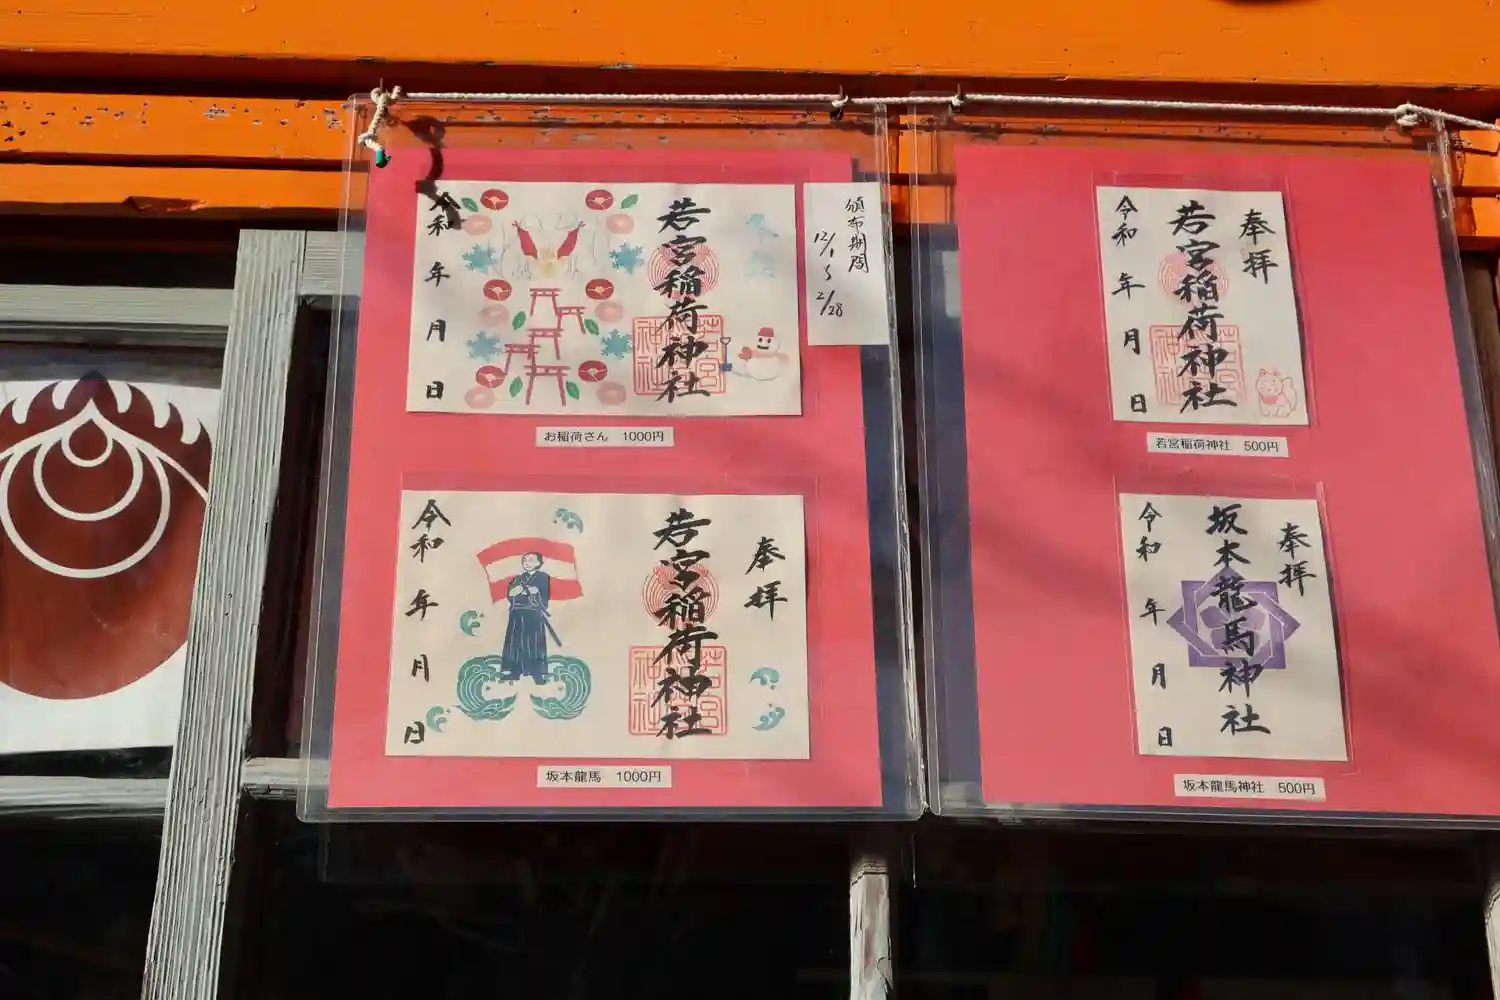 奉拝
若宮稲荷神社
若宮
神社
令和 年 月 日
頒布期間
12/1〜2/28
お稲荷さん 1000円
奉拝
若宮稲荷神社
若宮
神社
令和 年 月 日
坂本龍馬 1000円
奉拝
若宮稲荷神社
若宮
神社
令和 年 月 日
若宮稲荷神社 500円
奉拝
坂本龍馬神社
令和 年 月 日
坂本龍馬神社 500円